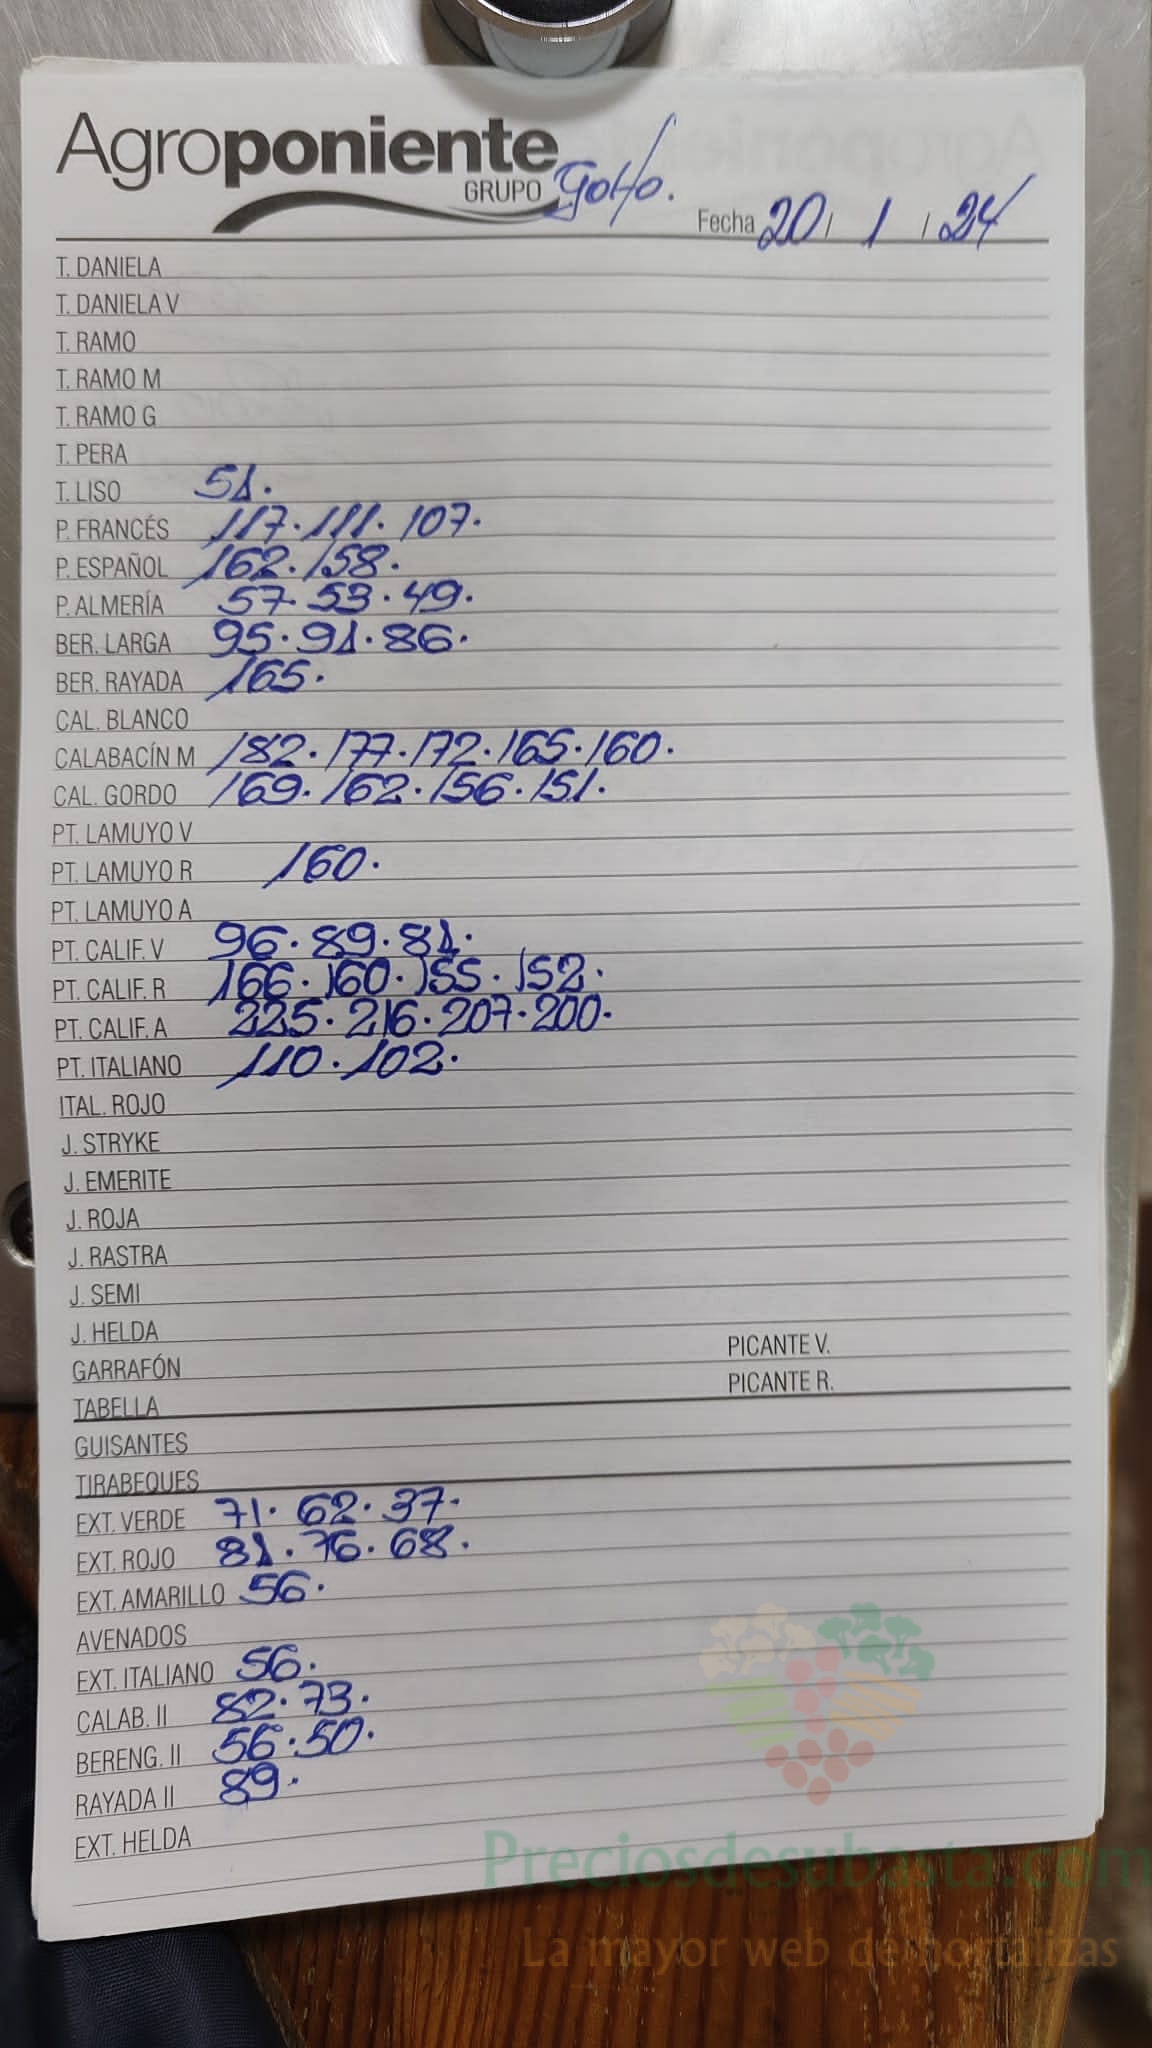 Agroponiente
GRUPO Golfo.
Fecha 20 / 1 / 24
T. DANIELA
T. DANIELA V
T. RAMO
T. RAMO M
T. RAMO G
T. PERA
T. LISO 51.
P. FRANCÉS 117. 111. 107.
P. ESPAÑOL 162. 158.
P. ALMERÍA 57. 53. 49.
BER. LARGA 95. 91. 86.
BER. RAYADA 165.
CAL. BLANCO
CALABACÍN M 182. 177. 172. 165. 160.
CAL. GORDO 169. 162. 156. 151.
PT. LAMUYO V
PT. LAMUYO R 160.
PT. LAMUYO A
PT. CALIF. V 96. 89. 81.
PT. CALIF. R 166. 160. 155. 152.
PT. CALIF. A 225. 216. 207. 200.
PT. ITALIANO 110. 102.
ITAL. ROJO
J. STRYKE
J. EMERITE
J. ROJA
J. RASTRA
J. SEMI
J. HELDA
PICANTE V.
GARRAFÓN
PICANTE R.
TABELLA
GUISANTES
TIRABEQUES
EXT. VERDE 71. 62. 37.
EXT. ROJO 81. 76. 68.
EXT. AMARILLO 56.
AVENADOS
EXT. ITALIANO 56.
CALAB. II 82. 73.
BERENG. II 56. 50.
RAYADA II 89.
EXT. HELDA
Preciosdesubasta.com
La mayor web de hortalizas